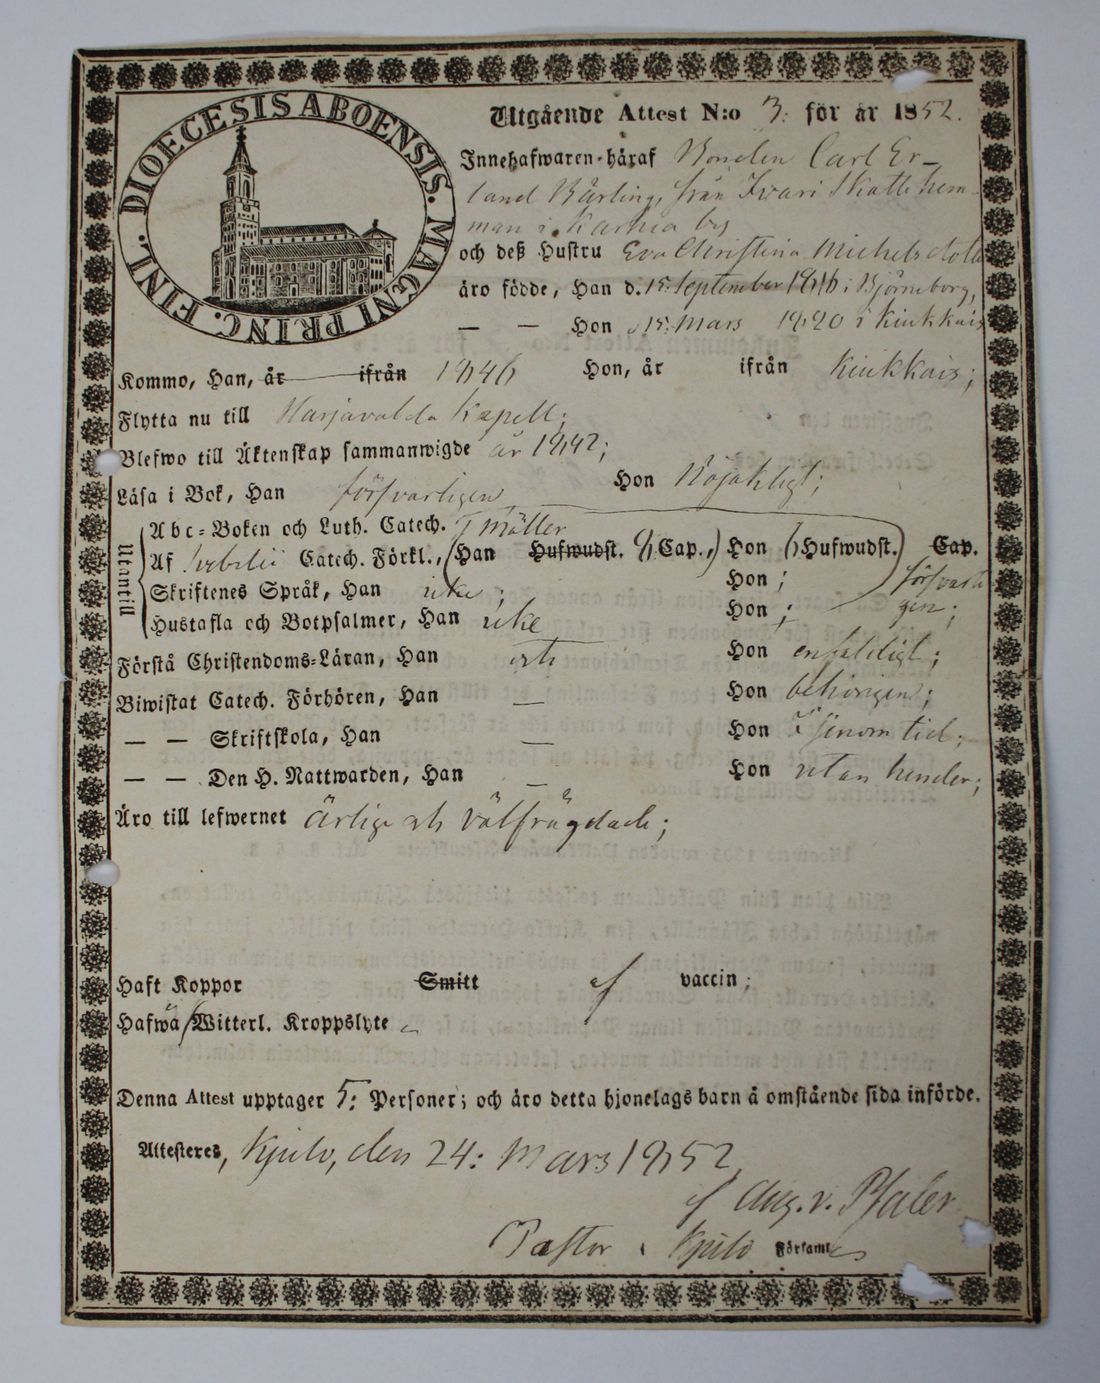 DIOECESIS ABOENSIS. MAGNI PRINC. FINL.
Utgående Attest N:o 3: för år 1852.
Innehafwaren häraf Bonden Carl Er-
land Bärling, från Iwari Skatte hem-
man i Karhia by
och deß Hustru Eva Christina Michelsdotter
äro födde, Han d. 15: September 1816 i Björneborg,
— — Hon d 15: Mars 1820 i Kiukkais
Kommo, Han, år ifrån 1846 Hon, år ifrån Kiukkais;
Flytta nu till Harjavalda Kapell;
Blefwo till Äktenskap sammanwigde år 1842;
Läsa i Bok, Han försvarligen Hon Nöjaktigt;
Utantill
Abc-Boken och Luth. Catech.
Af Svebelii Catech. Förkl., (Han Hufwudst. Cap.,) Hon (Hufwudst.) Cap.
Skriftenes Språk, Han icke; Hon ; försvarli
Hustafla och Botpsalmer, Han icke Hon ; gen;
Förstå Christendoms-Läran, Han Hon enfaldigt;
Biwistat Catech. Förhören, Han — Hon behörigen;
— — Skriftskola, Han — Hon i sinom tid;
— — Den H. Nattwarden, Han — Hon utan hinder;
Äro till lefwernet ärlige och välfrägdade;
Haft Koppor Smitt af vaccin;
Hafwa Witterl. Kroppslyte
Denna Attest upptager 5: Personer; och äro detta hjonelags barn å omstående sida införde.
Attesteres, Kjulo, den 24: Mars 1852
af Aug. v. Pfaler
Pastor i Kjulo Förſaml